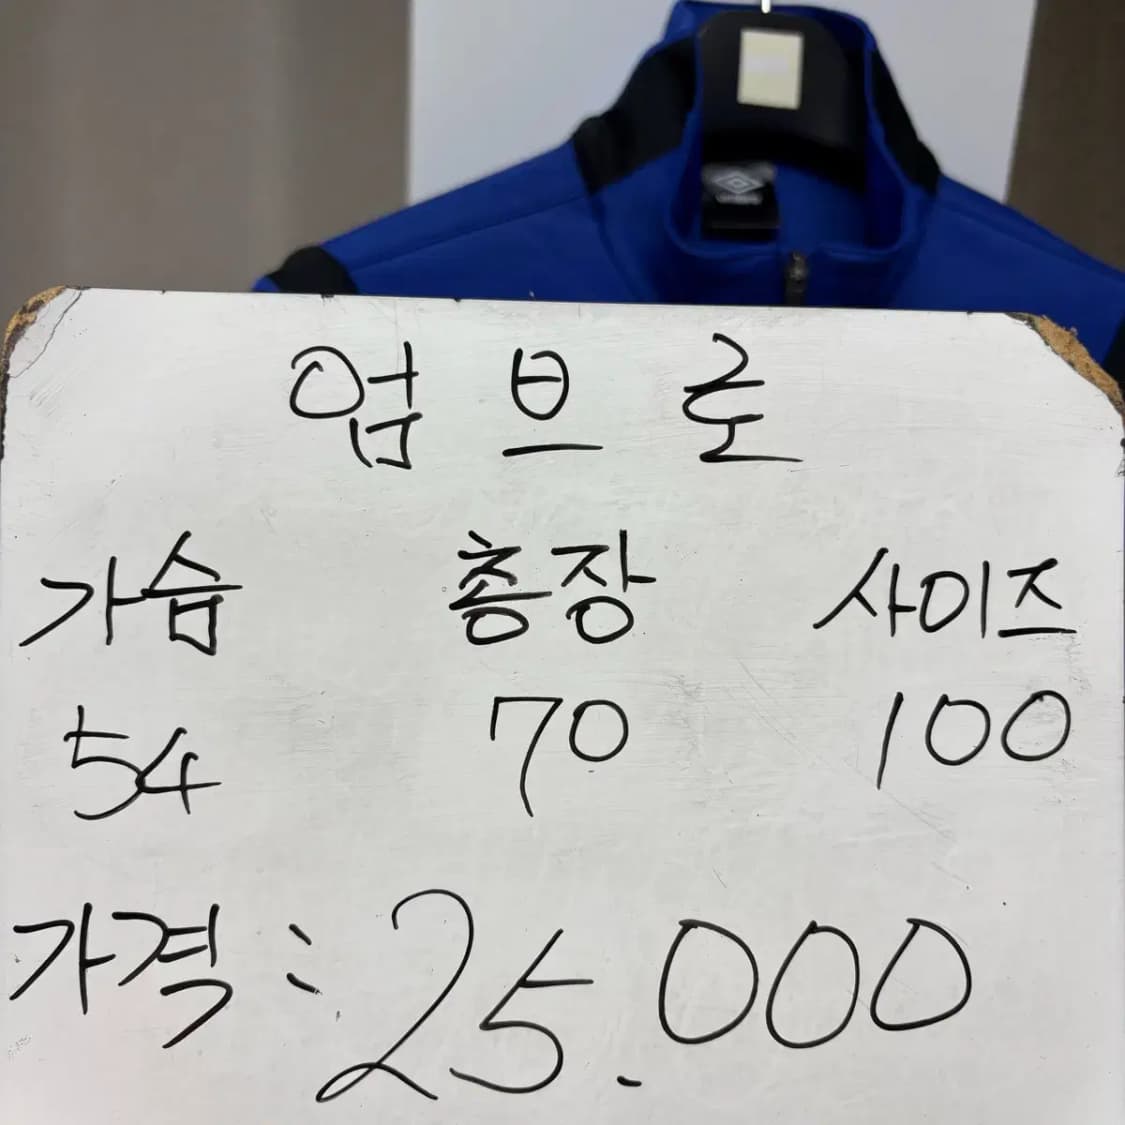 엄브로
가슴 총장 사이즈
54 70 100
가격: 25.000